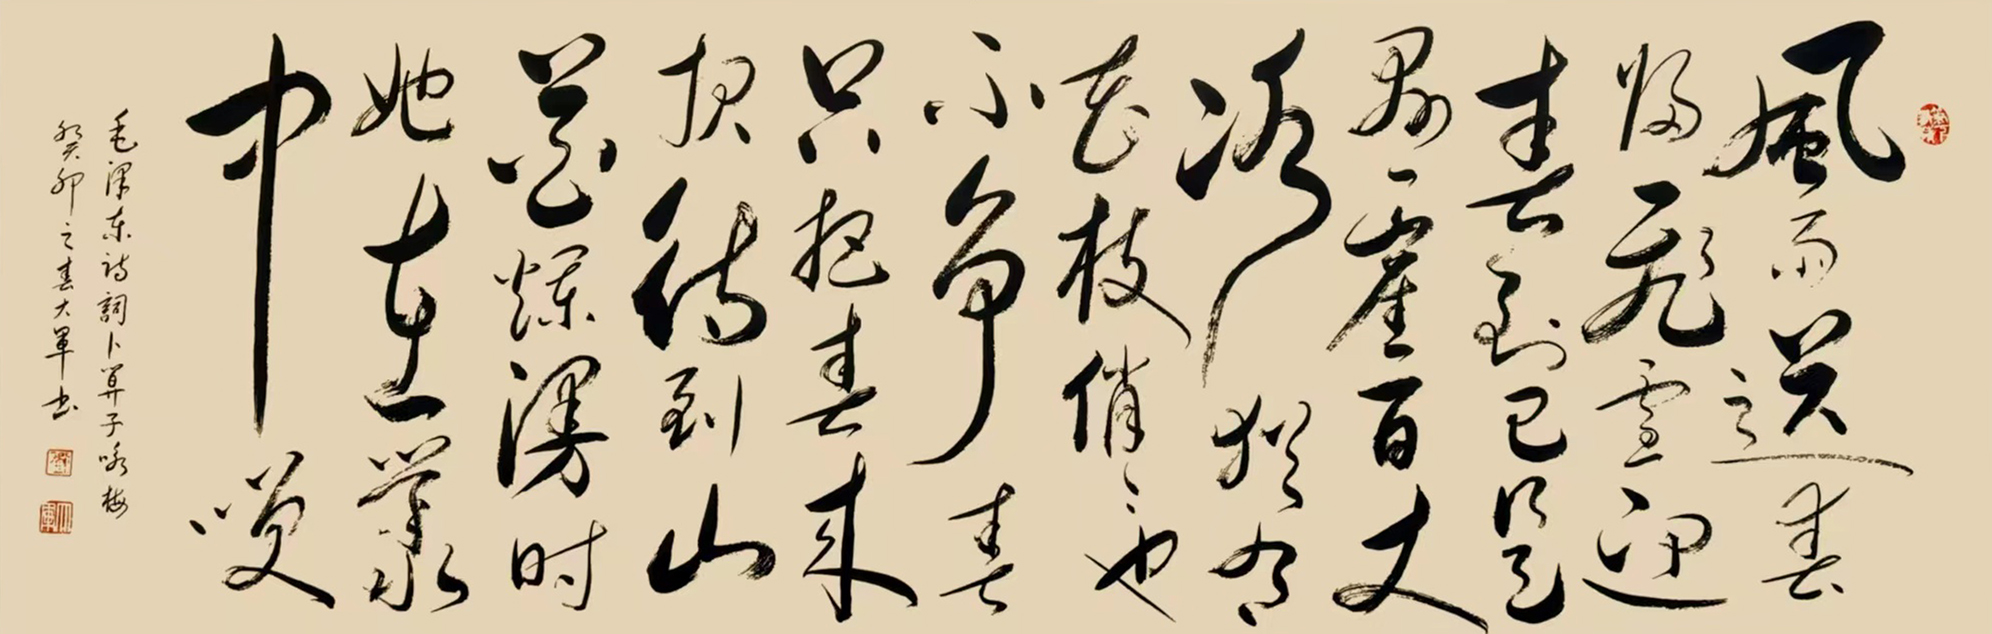 風雨送春
歸飛雪迎
春到已是
懸崖百丈
冰猶有
花枝俏〻也
不争春
只把春来
报待到山
花爛漫时
她在叢
中笑
毛澤東詩詞卜算子咏梅
癸卯之春大軍书